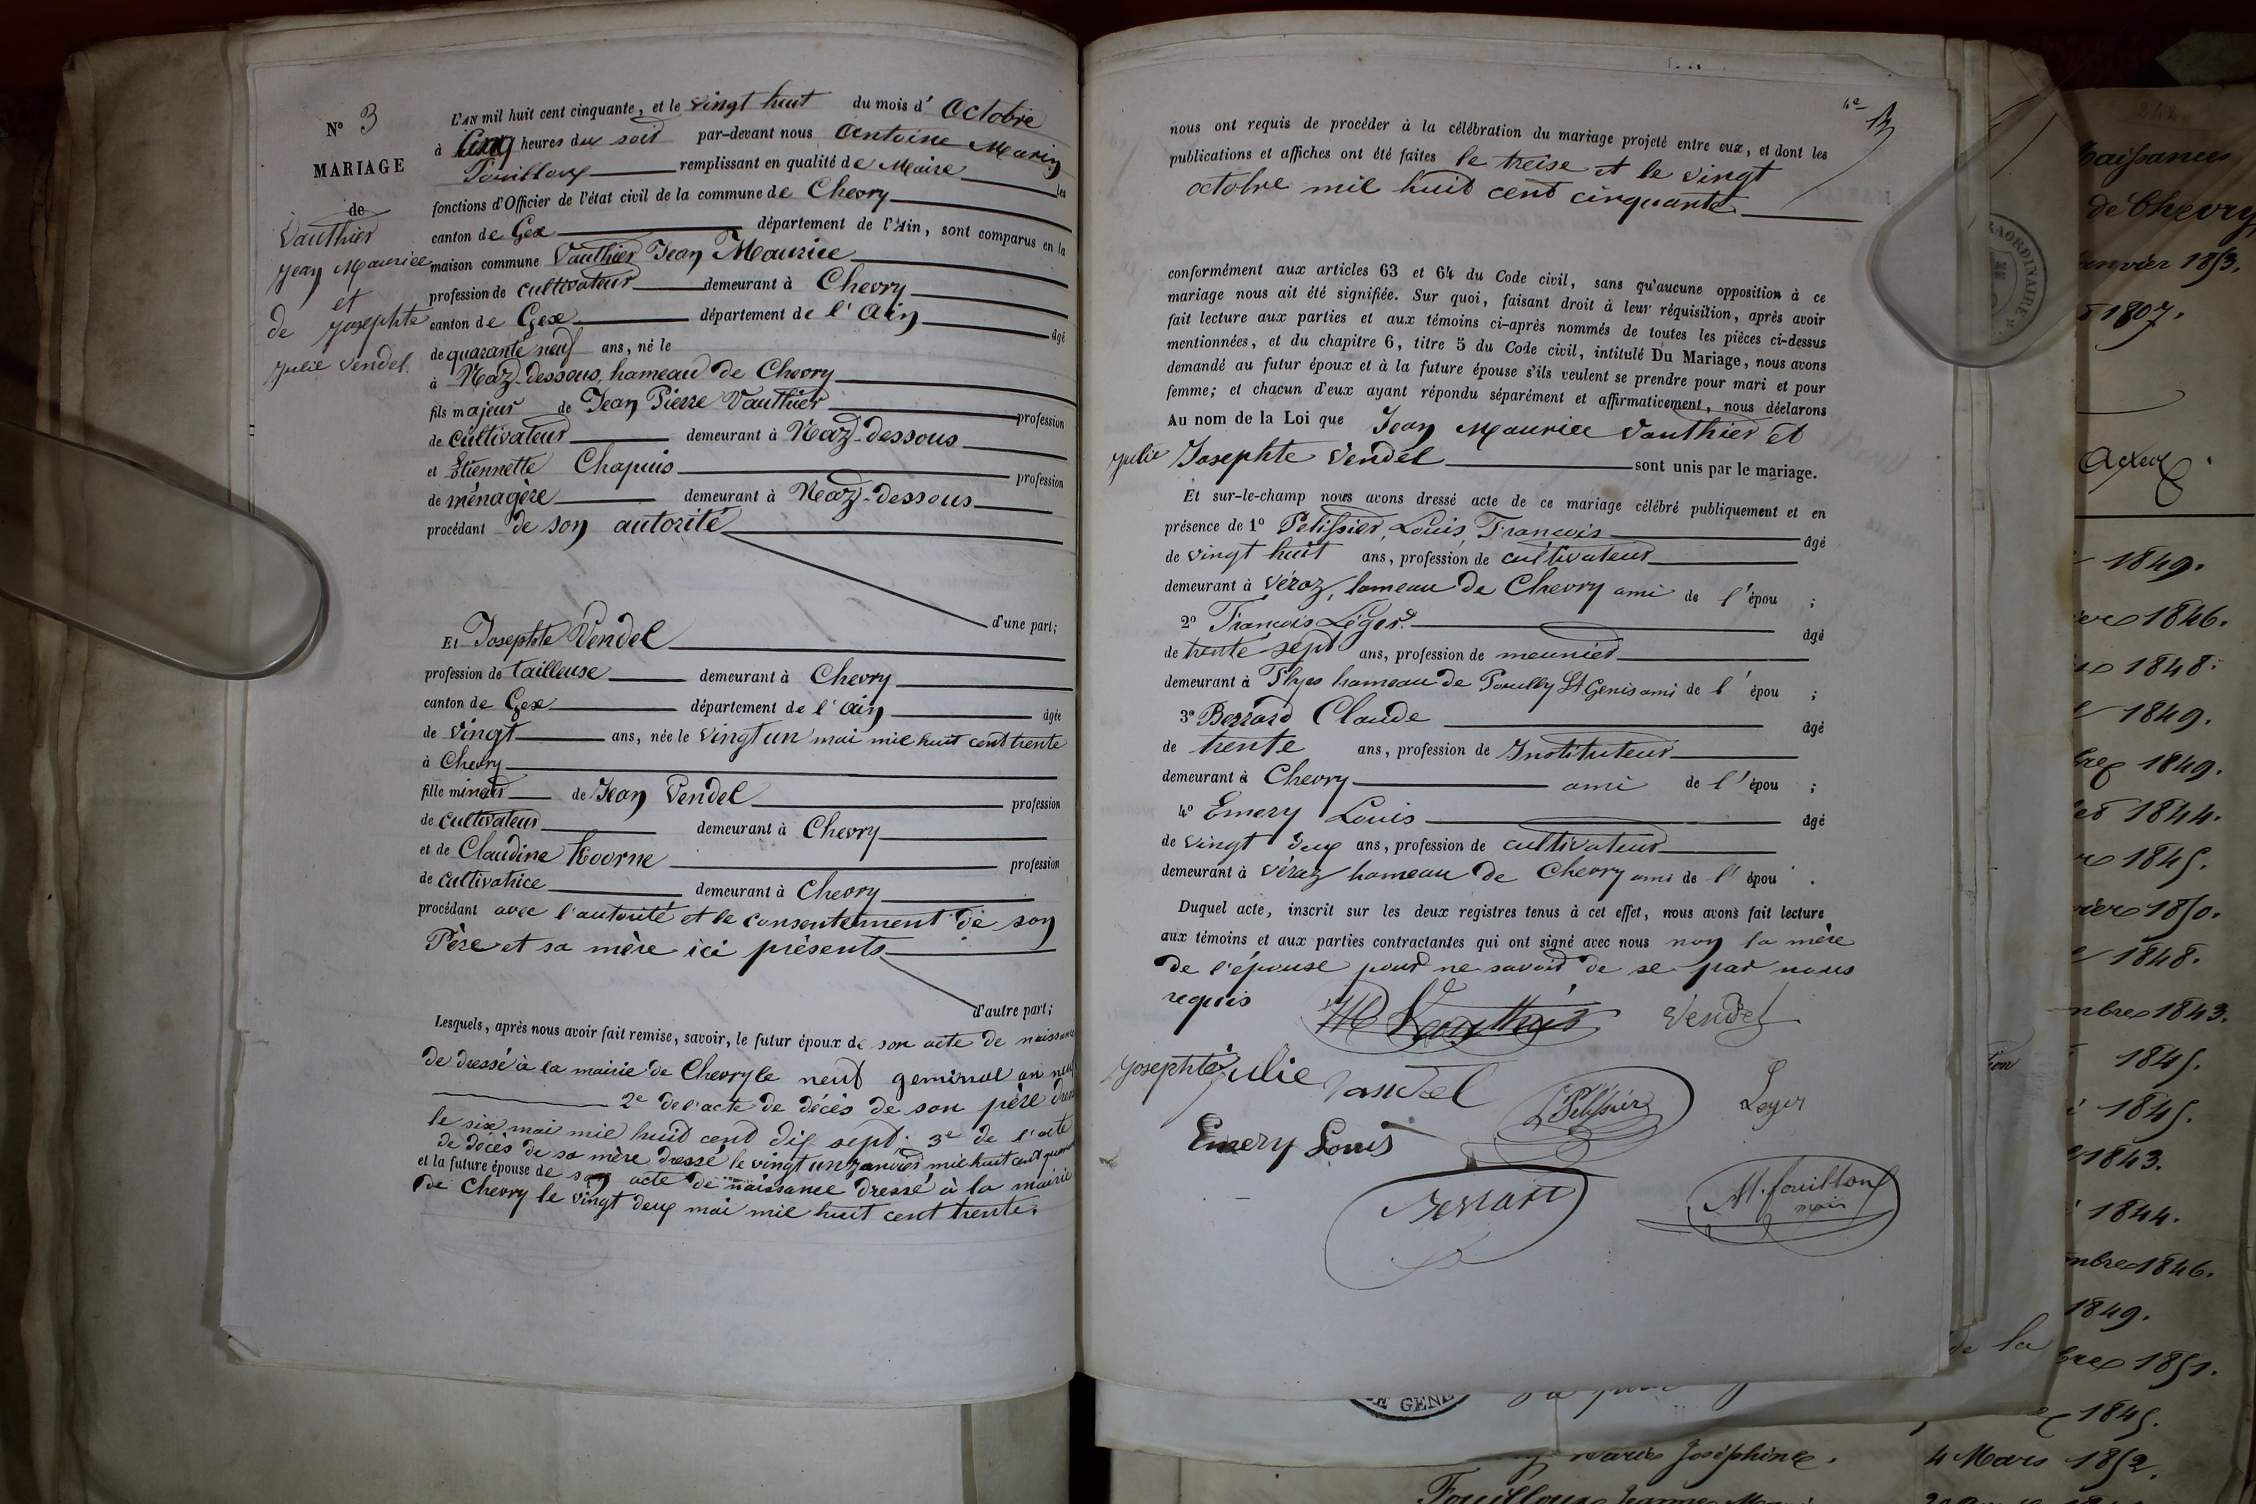 N° 3
MARIAGE
de
Vauthier
Jean Maurice
et
de Josephte
Julie Vendel.
L'AN mil huit cent cinquante, et le vingt huit du mois d' Octobre
à cinq heures du soir par-devant nous Antoine Marin
Fouilloux remplissant en qualité de Maire les
fonctions d'Officier de l'état civil de la commune de Chevry
canton de Gex département de l'Ain, sont comparus en la
maison commune Vauthier Jean Maurice
profession de cultivateur demeurant à Chevry
canton de Gex département de l'Ain âgé
de quarante neuf ans, né le
à Naz-dessous, hameau de Chevry
fils majeur de Jean Pierre Vauthier profession
de cultivateur demeurant à Naz-dessous
et Etiennette Chapuis profession
de ménagère demeurant à Naz-dessous
procédant de son autorité
d'une part;
Et Josephte Vendel
profession de tailleuse demeurant à Chevry
canton de Gex département de l'Ain âgée
de vingt ans, née le vingt un mai mil huit cent trente
à Chevry
fille mineur de Jean Vendel profession
de cultivateur demeurant à Chevry
et de Claudine profession
de cultivatrice demeurant à Chevry
procédant avec l'autorité et le consentement de son
Père et sa mère ici présents
d'autre part;
Lesquels, après nous avoir fait remise, savoir, le futur époux de son acte de naissance
de dressé à la mairie de Chevry le neuf geminal an neuf
2e de l'acte de décès de son père
le six mai mil huit cent dix sept. 3e de l'acte
de décès de sa mère dressé le vingt un janvier mil huit cent
et la future épouse de son acte de naissance dressé à la mairie
de Chevry le vingt deux mai mil huit cent trente.
nous ont requis de procéder à la célébration du mariage projeté entre eux, et dont les
publications et affiches ont été faites le treise et le vingt
octobre mil huit cent cinquante
conformément aux articles 63 et 64 du Code civil, sans qu'aucune opposition à ce
mariage nous ait été signifiée. Sur quoi, faisant droit à leur réquisition, après avoir
fait lecture aux parties et aux témoins ci-après nommés de toutes les pièces ci-dessus
mentionnées, et du chapitre 6, titre 5 du Code civil, intitulé Du Mariage, nous avons
demandé au futur époux et à la future épouse s'ils veulent se prendre pour mari et pour
femme; et chacun d'eux ayant répondu séparément et affirmativement, nous déclarons
Au nom de la Loi que Jean Maurice Vauthier et
Julie Josephte Vendel sont unis par le mariage.
Et sur-le-champ nous avons dressé acte de ce mariage célébré publiquement et en
présence de 1° Pelissier, Louis, François âgé
de vingt huit ans, profession de cultivateur
demeurant à Véraz, hameau de Chevry ami de l'épou ;
2° François Léger. âgé
de trente sept ans, profession de meunier
demeurant à Flyes hameau de Pouilly St Genis ami de l'épou ;
3° Berrard Claude âgé
de trente ans, profession de Instituteur
demeurant à Chevry ami de l'épou ;
4° Emery Louis âgé
de vingt deux ans, profession de cultivateur
demeurant à Véraz hameau de Chevry ami de l'épou .
Duquel acte, inscrit sur les deux registres tenus à cet effet, nous avons fait lecture
aux témoins et aux parties contractantes qui ont signé avec nous non la mère
de l'épouse pour ne savoir de se par nous
requis
JM Vauthier Vendel
Josephte Julie Vandel
LPelissier Leger
Emery Louis
Berrard
M. fouilloux
maire
Naissances
de Chevry
Janvier 1853.
1807.
1849.
1846.
1848.
1849.
1849.
1844.
1845.
1850.
1848.
1843.
1845.
1845.
1843.
1844.
1846.
1849.
de la
1851.
1845.
Marie Joséphine.
4 Mars 1852.